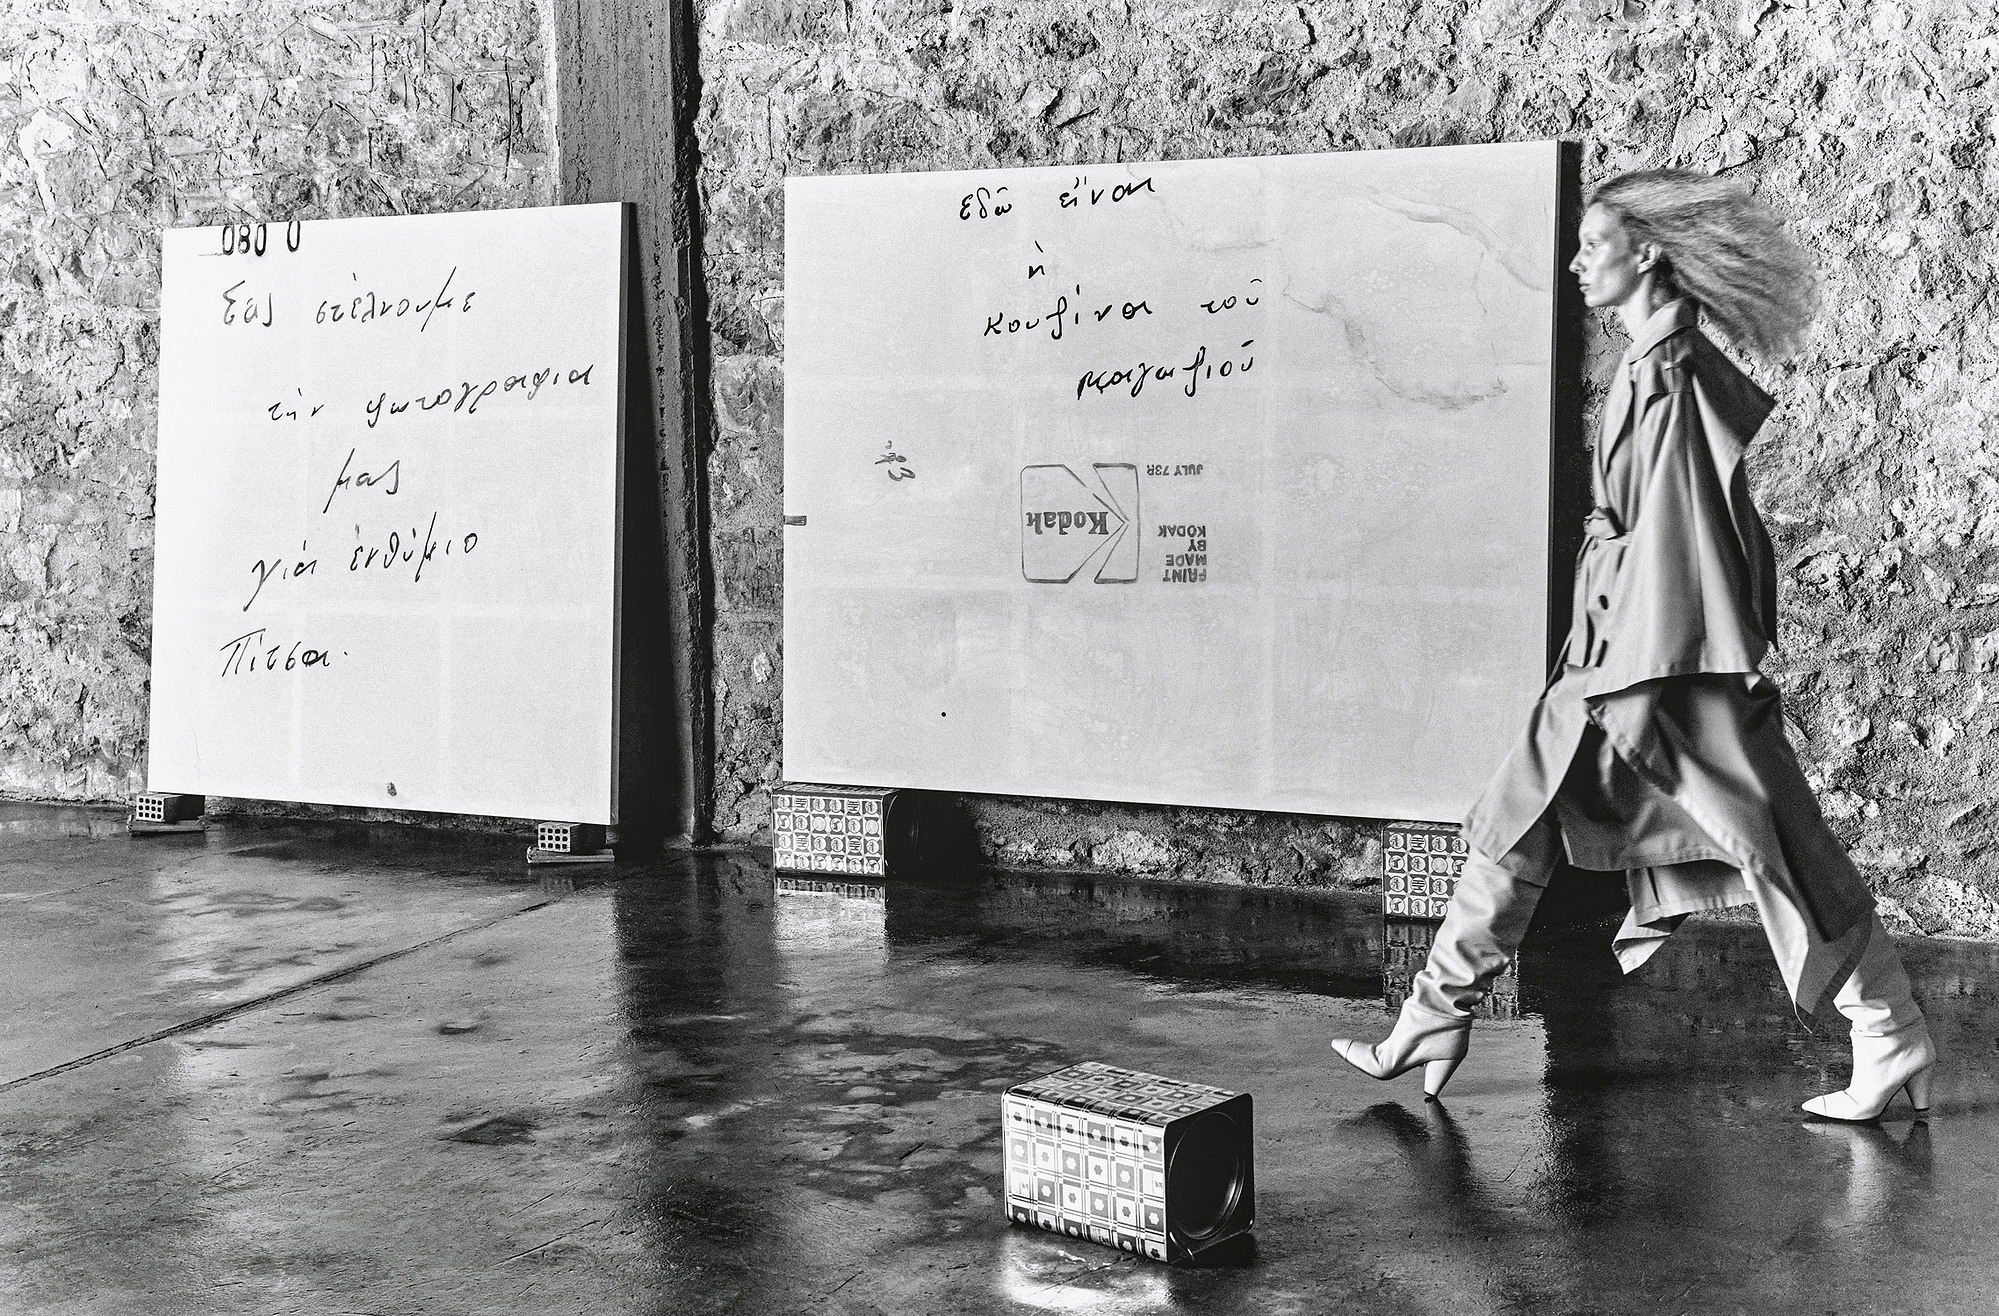 080 0
Σας στέλνουμε
τήν φωτογραφια
μας
γιά ἐνθύμιο
Πίτσα.
ἐδῶ εἶναι
ἡ
κουζίνα τοῦ
μαγαζιοῦ
JULY 73R
Kodak
PRINT
MADE
BY
KODAK